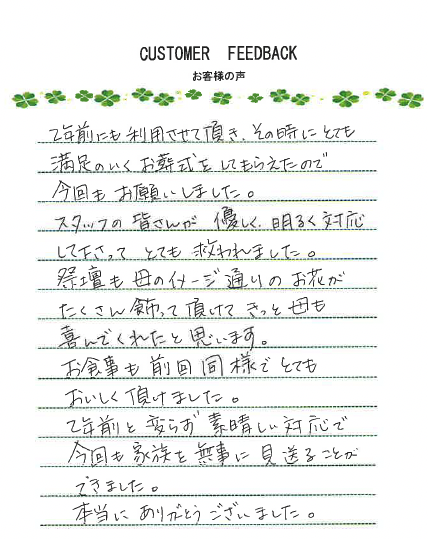 CUSTOMER FEEDBACK
お客様の声
2年前にも利用させて頂き、その時にとても
満足のいくお葬式をしてもらえたので
今回もお願いしました。
スタッフの皆さんが優しく、明るく対応
して下さってとても救われました。
祭壇も母のイメージ通りのお花が
たくさん飾って頂けてきっと母も
喜んでくれたと思います。
お食事も前回同様でとても
おいしく頂けました。
2年前と変らず素晴しい対応で
今回も家族を無事に見送ることが
できました。
本当にありがとうございました。